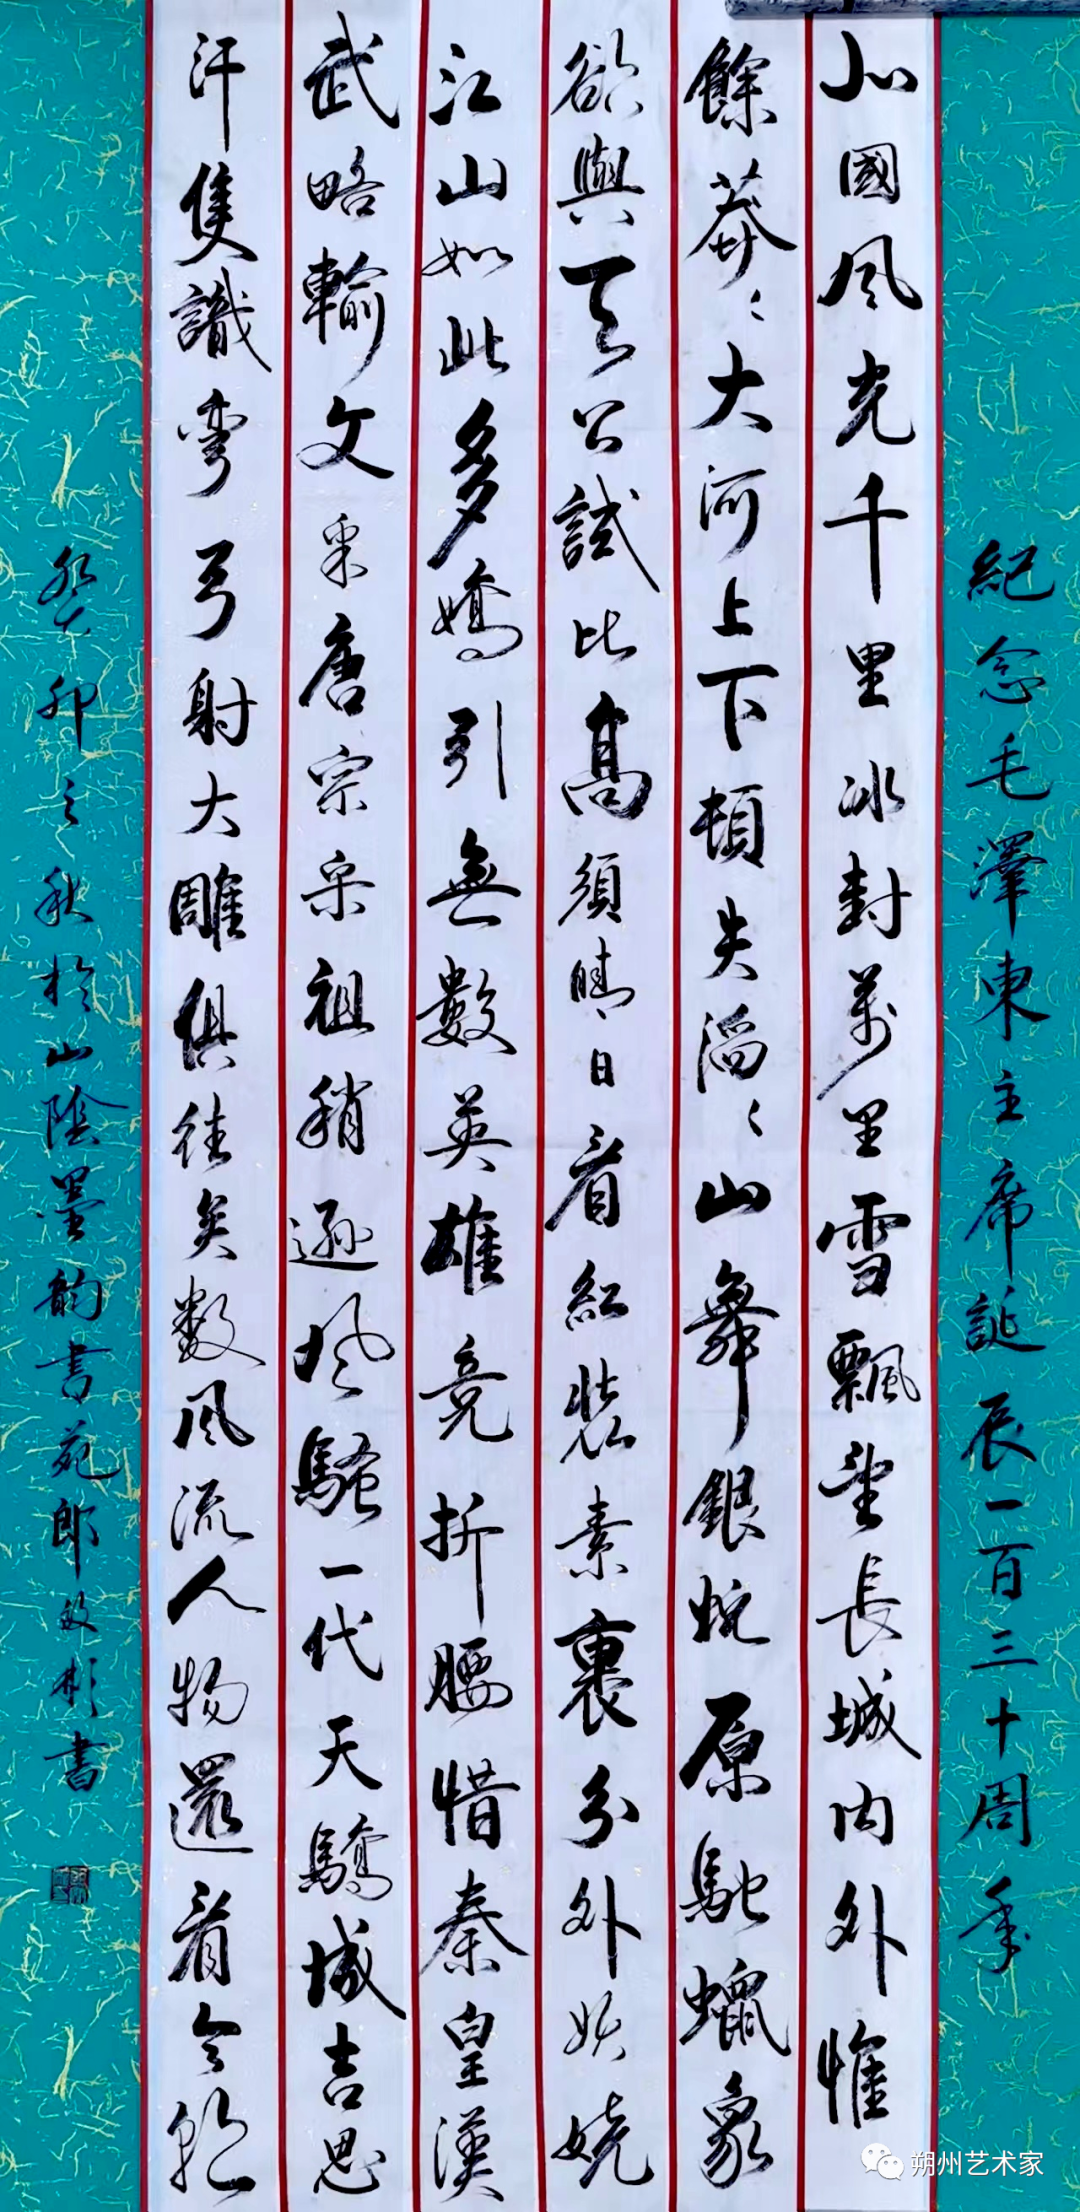 紀念毛澤東主席誕辰一百三十周年
北國風光千里冰封萬里雪飄望長城內外惟
餘莽〻大河上下頓失滔〻山舞銀蛇原馳蠟象
欲與天公試比高須晴日看紅裝素裹分外妖嬈
江山如此多嬌引無數英雄競折腰惜秦皇漢
武略輸文采唐宗宋祖稍遜風騷一代天驕成吉思
汗隻識彎弓射大雕俱往矣数風流人物還看今朝
癸卯之秋於山陰墨韵書苑郎彬書
朔州艺术家